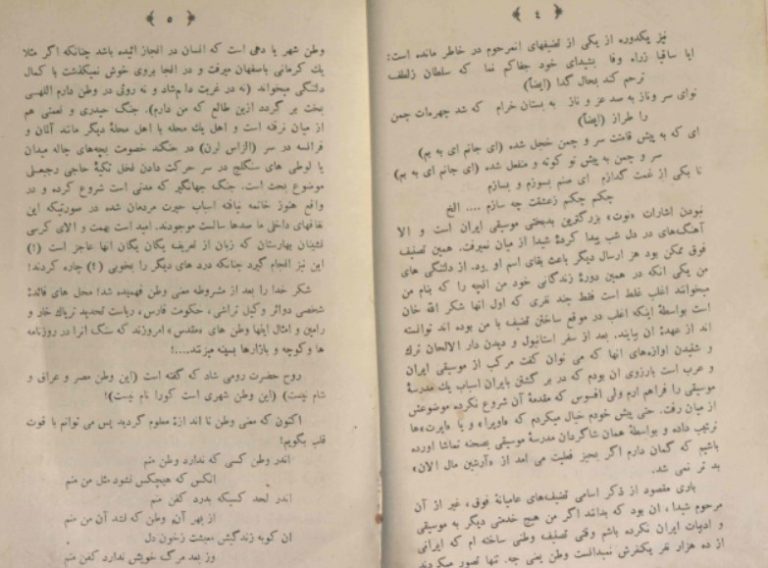 ﴿ ٤ ﴾
نیز یکدوره از یکی از تصنیفهای آنمرحوم در خاطر مانده است:
ایا ساقیا زراه وفا بشیدای خود جفا کم نما که سلطان زلطف
ترحم کند بحال گدا (ایضاً)
نوای سر وناز به صد عز و ناز به بستان خرام که شد چهرمات چمن
را طراز (ایضاً)
ای که به پیش قامتت سر و چمن خجل شده (ای جانم ای به بم)
سر و چمن به پیش تو کوته و منفعل شده (ای جانم ای به بم)
تا یکی از غمت گدازم ای صنم بسوزم و بسازم
چکنم چکنم زعشقت چه سازم .... الخ
نبودن اشارات «نوت» بزرگترین بدبختی موسیقی ایران است و الا
آهنگ‌های در دل شب پیدا کردهٔ شیدا از میان نمیرفت. همین تصنیف
فوق ممکن بود هز ارسال دیگر باعث بقای اسم او رد. از دلتنگی های
من یکی آنکه در همین دورهٔ زندگانی خود من آنچه را که بنام من
میخوانند اغلب غلط است فقط چند نفری که اول آنها شکر الله خان
است بواسطهٔ اینکه اغلب در موقع ساختن تصنیف با من بوده اند توانسته
اند از عهدهٔ آن بیایند. بعد از سفر استانبول و دیدن دار الالحان ترک
و شنیدن آوازه‌های آنها که می توان گفت مرکب از موسیقی ایران
و عرب است بآرزوی آن بودم که در بر گشتن بایران اسباب یک مدرسهٔ
موسیقی را فراهم آرم ولی افسوس که مقدمهٔ آن شروع نکرده موضوعش
از میان رفت. حتی پیش خودم خیال میکردم که «اوپرا» و یا «اپرت»ها
ترتیب داده و بواسطهٔ همان شاگردان مدرسهٔ موسیقی بصحنه تماشا آورده
باشم که گمان دارم اگر بحیز فعلیت می آمد از «آرشین مال الان»
بد تر نمی شد.
باری مقصود از ذکر اسامی تصنیف‌های عامیانهٔ فوق، غیر از آن
مرحوم شیدا، آن بود که بدانند اگر من هیچ خدمتی دیگر به موسیقی
و ادبیات ایران نکرده باشم وقتی تصنیف وطنی ساخته ام که ایرانی
از ده هزار نفر یکنفرش نمیدانست وطن یعنی چه. تنها تصور میکردند
﴿ ٥ ﴾
وطن شهر یا دهی است که انسان در آنجاز ائیده باشد چنانکه اگر مثلا
یک کرمانی باصفهان میرفت و در آنجا بروی خوش نمیگذشت با کمال
دلتنگی میخواند (نه در غربت دلم شاد و نه روئی در وطن دارم الهی
بخت بر گردد ازین طالع که من دارم). جنگ حیدری و نعمتی هم
از میان نرفته است و اهل یک محله با اهل محلهٔ دیگر مانند آلمان و
فرانسه در سر (الزاس لرن) در جنگند خصومت بچه‌های چاله میدان
با لوطی های سنگلج در سر حرکت دادن نخل تکیهٔ حاجی رجبعلی
موضوع بحث است. جنگ جهانگیر که مدتی است شروع کرده و در
واقع هنوز خاتمه نیافته اسباب حیرت مردمان شده در صورتیکه این
نفاقهای داخلی ما صدها سالست موجودند. امید است بهمت و الای کرسی
نشینان بهارستان که زبان از تعریف یگان یگان آنها عاجز است (!)
این نیز انجام گیرد چنانکه درد های دیگر را بخوبی (؟) چاره کردند!
شکر خدا را بعد از مشروطه معنی وطن فهمیده شد! محل های فائدهٔ
شخصی دوائر وکیل تراشی، حکومت فارس، ریاست تحدید تریاک خار و
رامین و امثال اینها وطن های «مقدس» امروزند که سنگ آنرا در روزنامه
ها وکوچه و بازارها بسینه میزنند....!
روح حضرت رومی شاد که گفته است (این وطن مصر و عراق و
شام نیست) (این وطن شهری است کورا نام نیست)!
اکنون که معنی وطن تا اندازهٔ معلوم گردید پس می توانم با قوت
قلب بگویم!
اندر وطن کسی که ندارد وطن منم
آنکس که هیچکس نشود مثل من منم
اندر لحد کسیکه بدرد کفن منم
از بهر آن وطن که شد آن من منم
آن کوبه زندگیش معیشت زخون دل
وز بعد مرگ خویش ندارد کفن منم